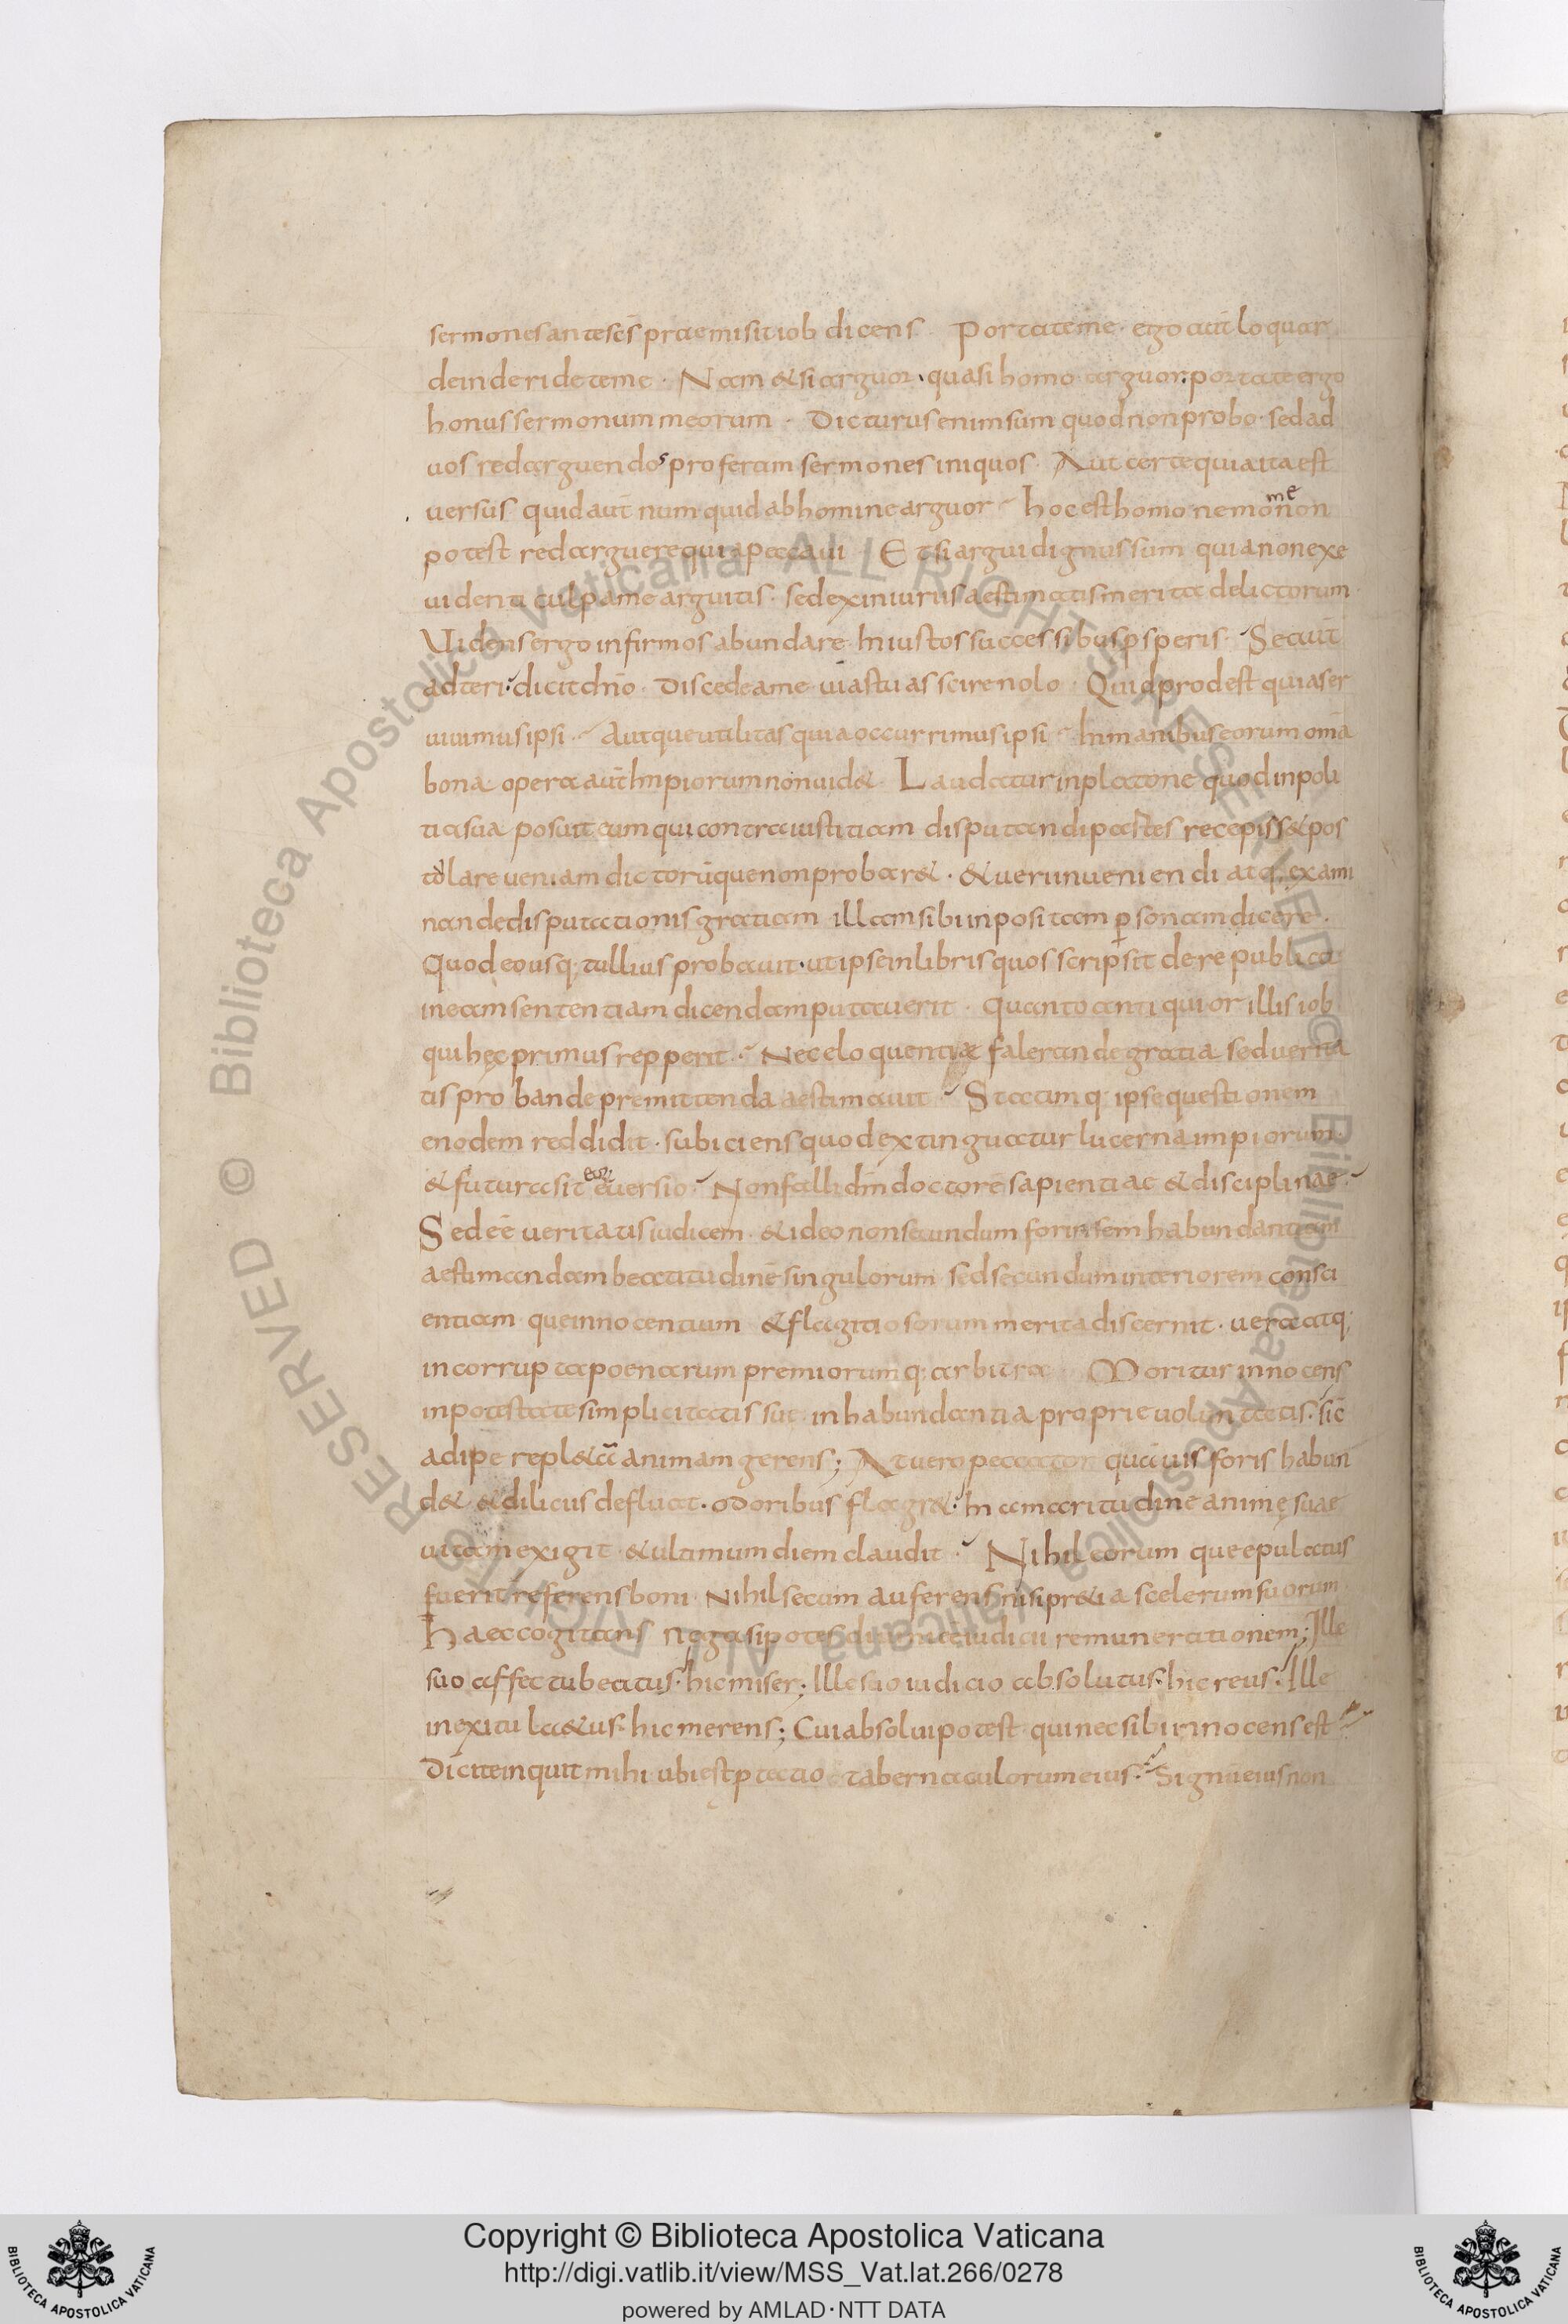 sermones antescs praemisit iob dicens. Portate me. ego aut loquar
deinde ridete me. Nam & si arguor. quasi homo arguor. portate ergo
honus sermonum meorum. Dicturus enim sum quod non probo. sed ad
uos redarguendos proferam sermones iniquos. Aut certe quia ita est
uersus quid aut numquid ab homine arguor. hoc est homo nemo me non
potest redarguere quia peccaui. Et si argui dignus sum quia non exe
uidenti culpa me arguitis. sed ex iniuriis aestimatis merita delictorum.
Uidens ergo infirmos abundare iniustos successibus psperis. Se aut
adteri. dicit dno. Discede a me. uias tuas scire nolo. Quid prodest quia ser
uiuimus ipsi. Aut que utilitas quia occurrimus ipsi. In manibus eorum oma
bona. opera aut impiorum non uid&. Laudatur in platone quod in poli
tia sua posuit eum qui contra iustitiam disputandi partes recepiss& pos
tolare ueniam dictorū que non probar&. & ueri inueniendi atq; exami
nande disputationis gratiam illam sibi inpositam psonam dicere.
Quod eousq; tullius probauit. ut ipse in libris quos scripsit de re publica
in eam sententiam dicendam putauerit. Quanto antiquior illis iob
qui hęc primus repperit. Nec eloquentiae falerande gratia sed uerita
tis probande premittenda aestimauit. Statimq; ipse questionem
enodem reddidit. subiciens quod extinguatur lucerna impiorum.
& futura sit eor euersio. Non falli dm doctorē sapientiae & disciplinae.
Sed eē ueritatis iudicem. & ideo non secundum forinsem habundantiam
aestimandam beatitudinē singulorum. sed secundum interiorem consci
entiam. que innocentium & flagitiosorum merita discernit. uera atq;
incorrupta poenarum premiorumq; arbitra. Moritur innocens
in potestate simplicitatis sue. in habundantia proprie uoluntatis. sic
adipe repl&ā animam gerens; At uero peccator quāuis foris habun
d& & dilicus defluat. odoribus flagr&. In amaritudine animę suae
uitam exigit & ultimum diem claudit. Nihil eorum que epulatus
fuerit referens boni. Nihil secum auferens nisi pr&ia scelerum suorum.
Haec cogitans nega si potes diuini iudicii remunerationem; Ille
suo affectu beatus. hic miser; Ille suo iudicio absolutus. hic reus. Ille
in exitu la&us. hic merens; Cui absolui potest qui nec sibi innocens est
Dicite inquit mihi ubi est ptectio tabernaculorum eius. Signū eius non
Copyright © Biblioteca Apostolica Vaticana
http://digi.vatlib.it/view/MSS_Vat.lat.266/0278
powered by AMLAD·NTT DATA